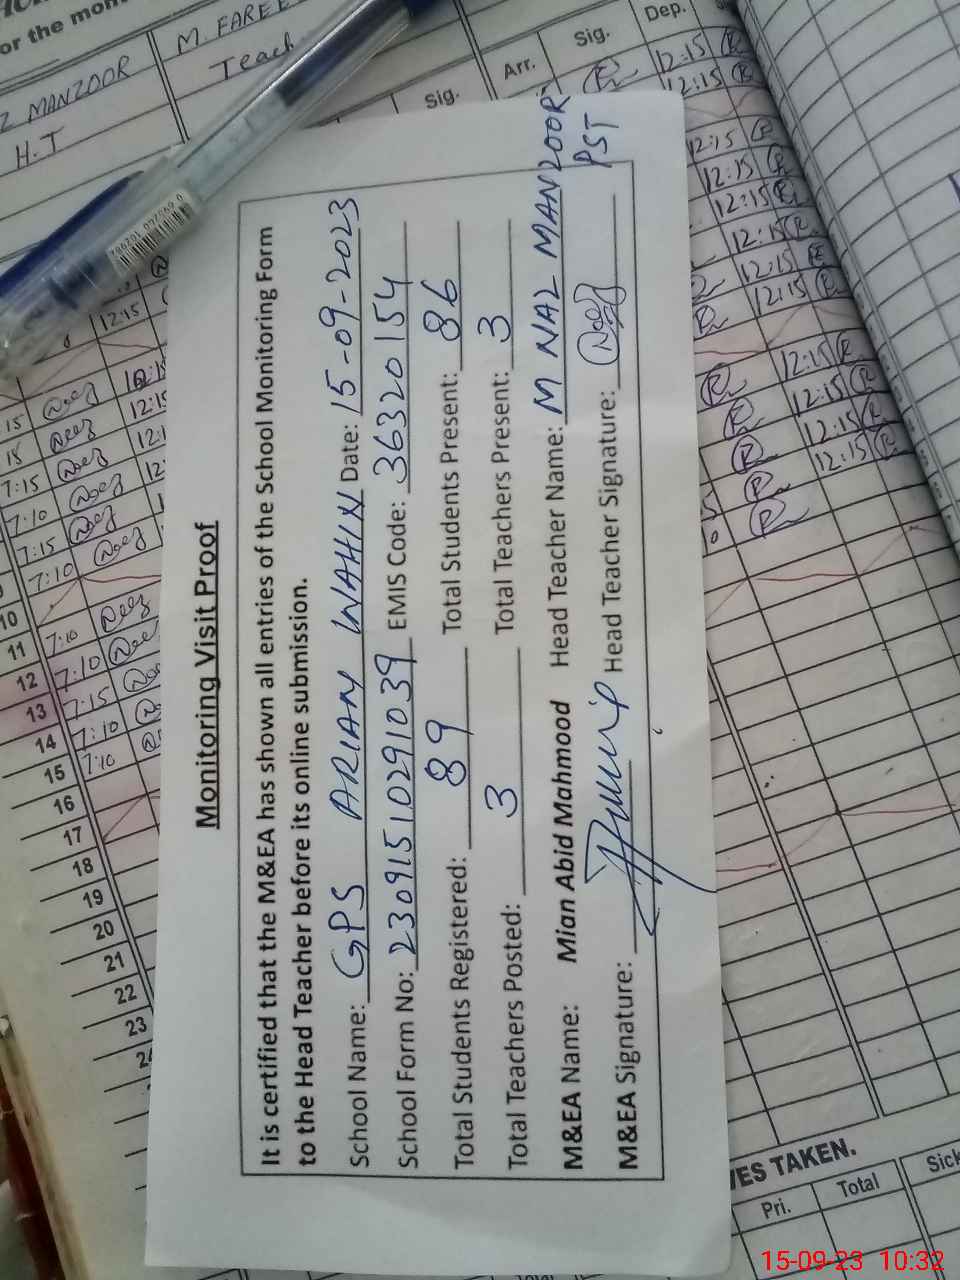 or the mon
M. FAREE
Z MANZOOR
Teach
H.T
Sig.
Arr.
Sig.
Dep.
Monitoring Visit Proof
It is certified that the M&EA has shown all entries of the School Monitoring Form
to the Head Teacher before its online submission.
School Name: GPS ARIAN WAHIN Date: 15-09-2023
School Form No: 230915102910 39 EMIS Code: 36320154
Total Students Registered: 89 Total Students Present: 86
Total Teachers Posted: 3 Total Teachers Present: 3
M&EA Name: Mian Abid Mahmood Head Teacher Name: M NAZ MANZOOR
PST
M&EA Signature: Head Teacher Signature:
12:15
12:15
12:15
12:15
12:15
12:15
12:15
12:15
12:15
12:15
12:15
12:15
12:15
12:15
7:15
7:10
7:15
7:10
10
11 7:10
12 7:10
13 7:15
14 7:10
15 7:10
16
17
18
19
20
21
22
23
VES TAKEN.
Pri.
Total
Sick
15-09-23 10:32